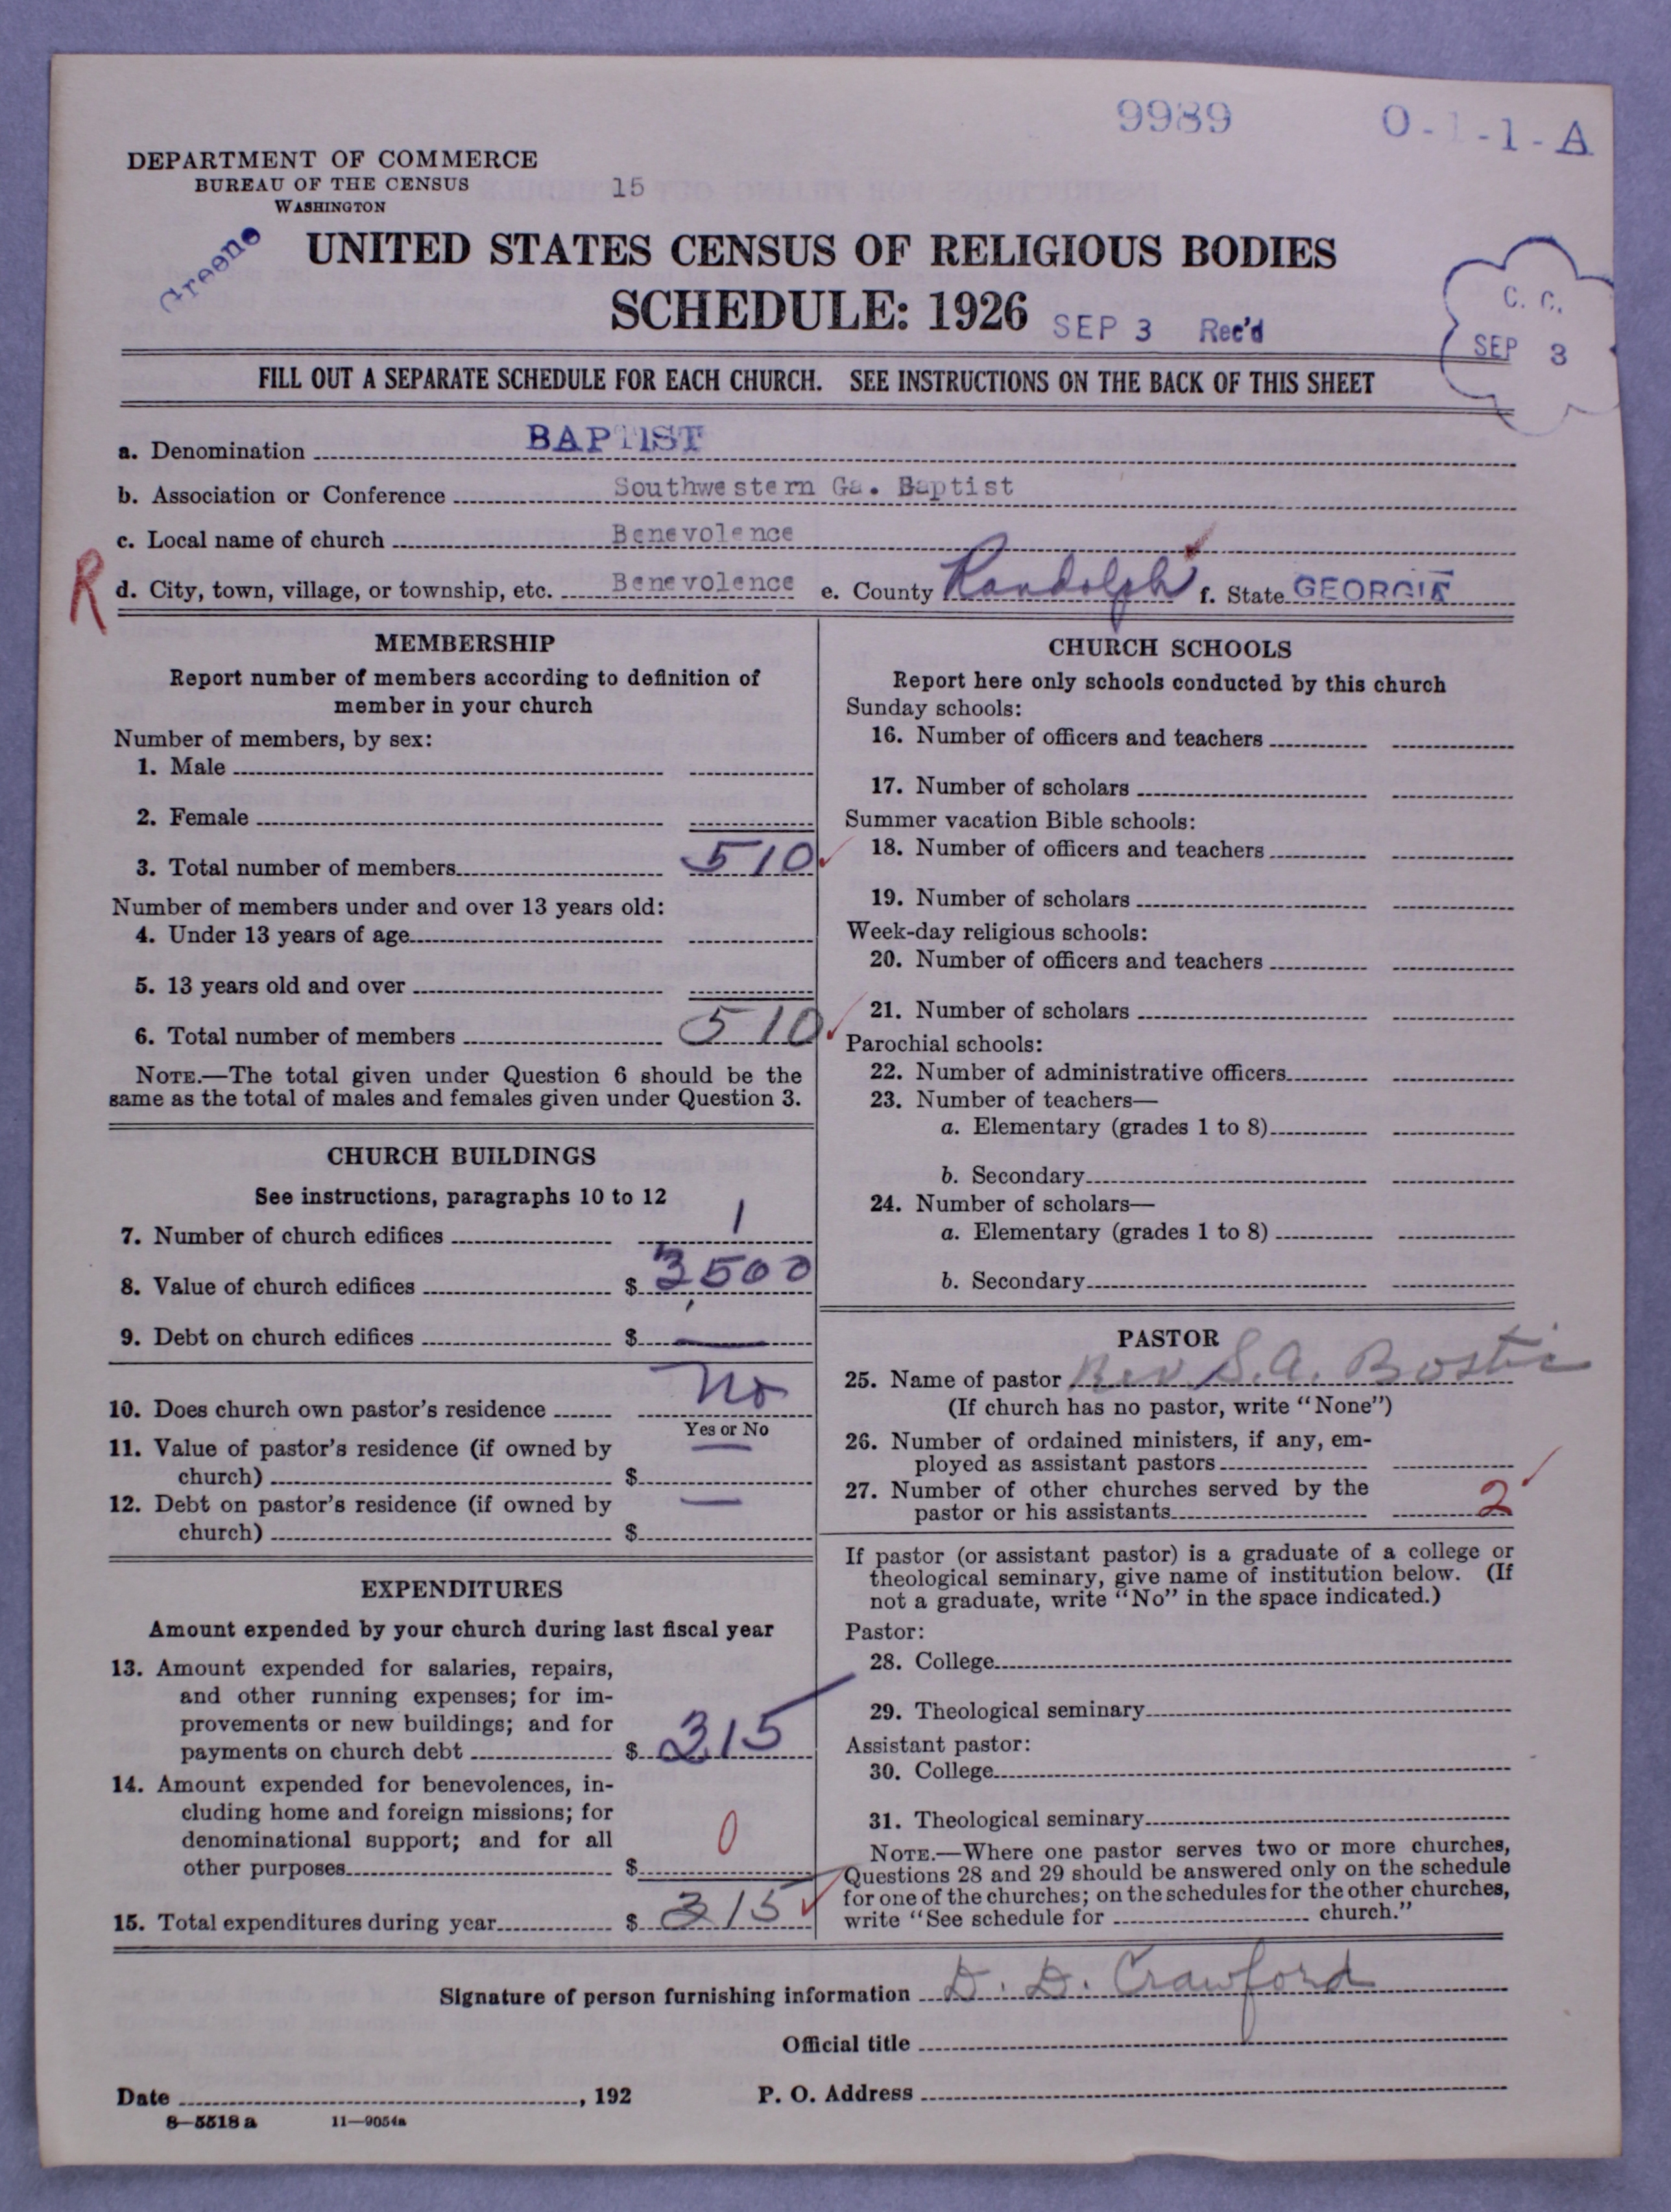 9989
O-1-1-A
DEPARTMENT OF COMMERCE
BUREAU OF THE CENSUS
WASHINGTON
15
Greene
UNITED STATES CENSUS OF RELIGIOUS BODIES
SCHEDULE: 1926
SEP 3 Rec'd
C. C.
SEP 3
FILL OUT A SEPARATE SCHEDULE FOR EACH CHURCH. SEE INSTRUCTIONS ON THE BACK OF THIS SHEET
a. Denomination BAPTIST
b. Association or Conference Southwestern Ga. Baptist
c. Local name of church Benevolence
R
d. City, town, village, or township, etc. Benevolence e. County Randolph f. State GEORGIA
MEMBERSHIP
Report number of members according to definition of
member in your church
Number of members, by sex:
1. Male
2. Female
3. Total number of members 510
Number of members under and over 13 years old:
4. Under 13 years of age
5. 13 years old and over
6. Total number of members 510
NOTE.—The total given under Question 6 should be the
same as the total of males and females given under Question 3.
CHURCH BUILDINGS
See instructions, paragraphs 10 to 12
7. Number of church edifices 1
8. Value of church edifices $ 3500
9. Debt on church edifices $ —
10. Does church own pastor's residence No
Yes or No
11. Value of pastor's residence (if owned by
church) $ —
12. Debt on pastor's residence (if owned by
church) $ —
EXPENDITURES
Amount expended by your church during last fiscal year
13. Amount expended for salaries, repairs,
and other running expenses; for im-
provements or new buildings; and for
payments on church debt $ 315
14. Amount expended for benevolences, in-
cluding home and foreign missions; for
denominational support; and for all
other purposes $ 0
15. Total expenditures during year $ 315
CHURCH SCHOOLS
Report here only schools conducted by this church
Sunday schools:
16. Number of officers and teachers
17. Number of scholars
Summer vacation Bible schools:
18. Number of officers and teachers
19. Number of scholars
Week-day religious schools:
20. Number of officers and teachers
21. Number of scholars
Parochial schools:
22. Number of administrative officers
23. Number of teachers—
a. Elementary (grades 1 to 8)
b. Secondary
24. Number of scholars—
a. Elementary (grades 1 to 8)
b. Secondary
PASTOR
25. Name of pastor Rev. S. A. Bostic
(If church has no pastor, write "None")
26. Number of ordained ministers, if any, em-
ployed as assistant pastors
27. Number of other churches served by the
pastor or his assistants 2
If pastor (or assistant pastor) is a graduate of a college or
theological seminary, give name of institution below. (If
not a graduate, write "No" in the space indicated.)
Pastor:
28. College
29. Theological seminary
Assistant pastor:
30. College
31. Theological seminary
NOTE.—Where one pastor serves two or more churches,
Questions 28 and 29 should be answered only on the schedule
for one of the churches; on the schedules for the other churches,
write "See schedule for church."
Signature of person furnishing information D. D. Crawford
Official title
Date , 192 P. O. Address
8—5518 a 11—9054a